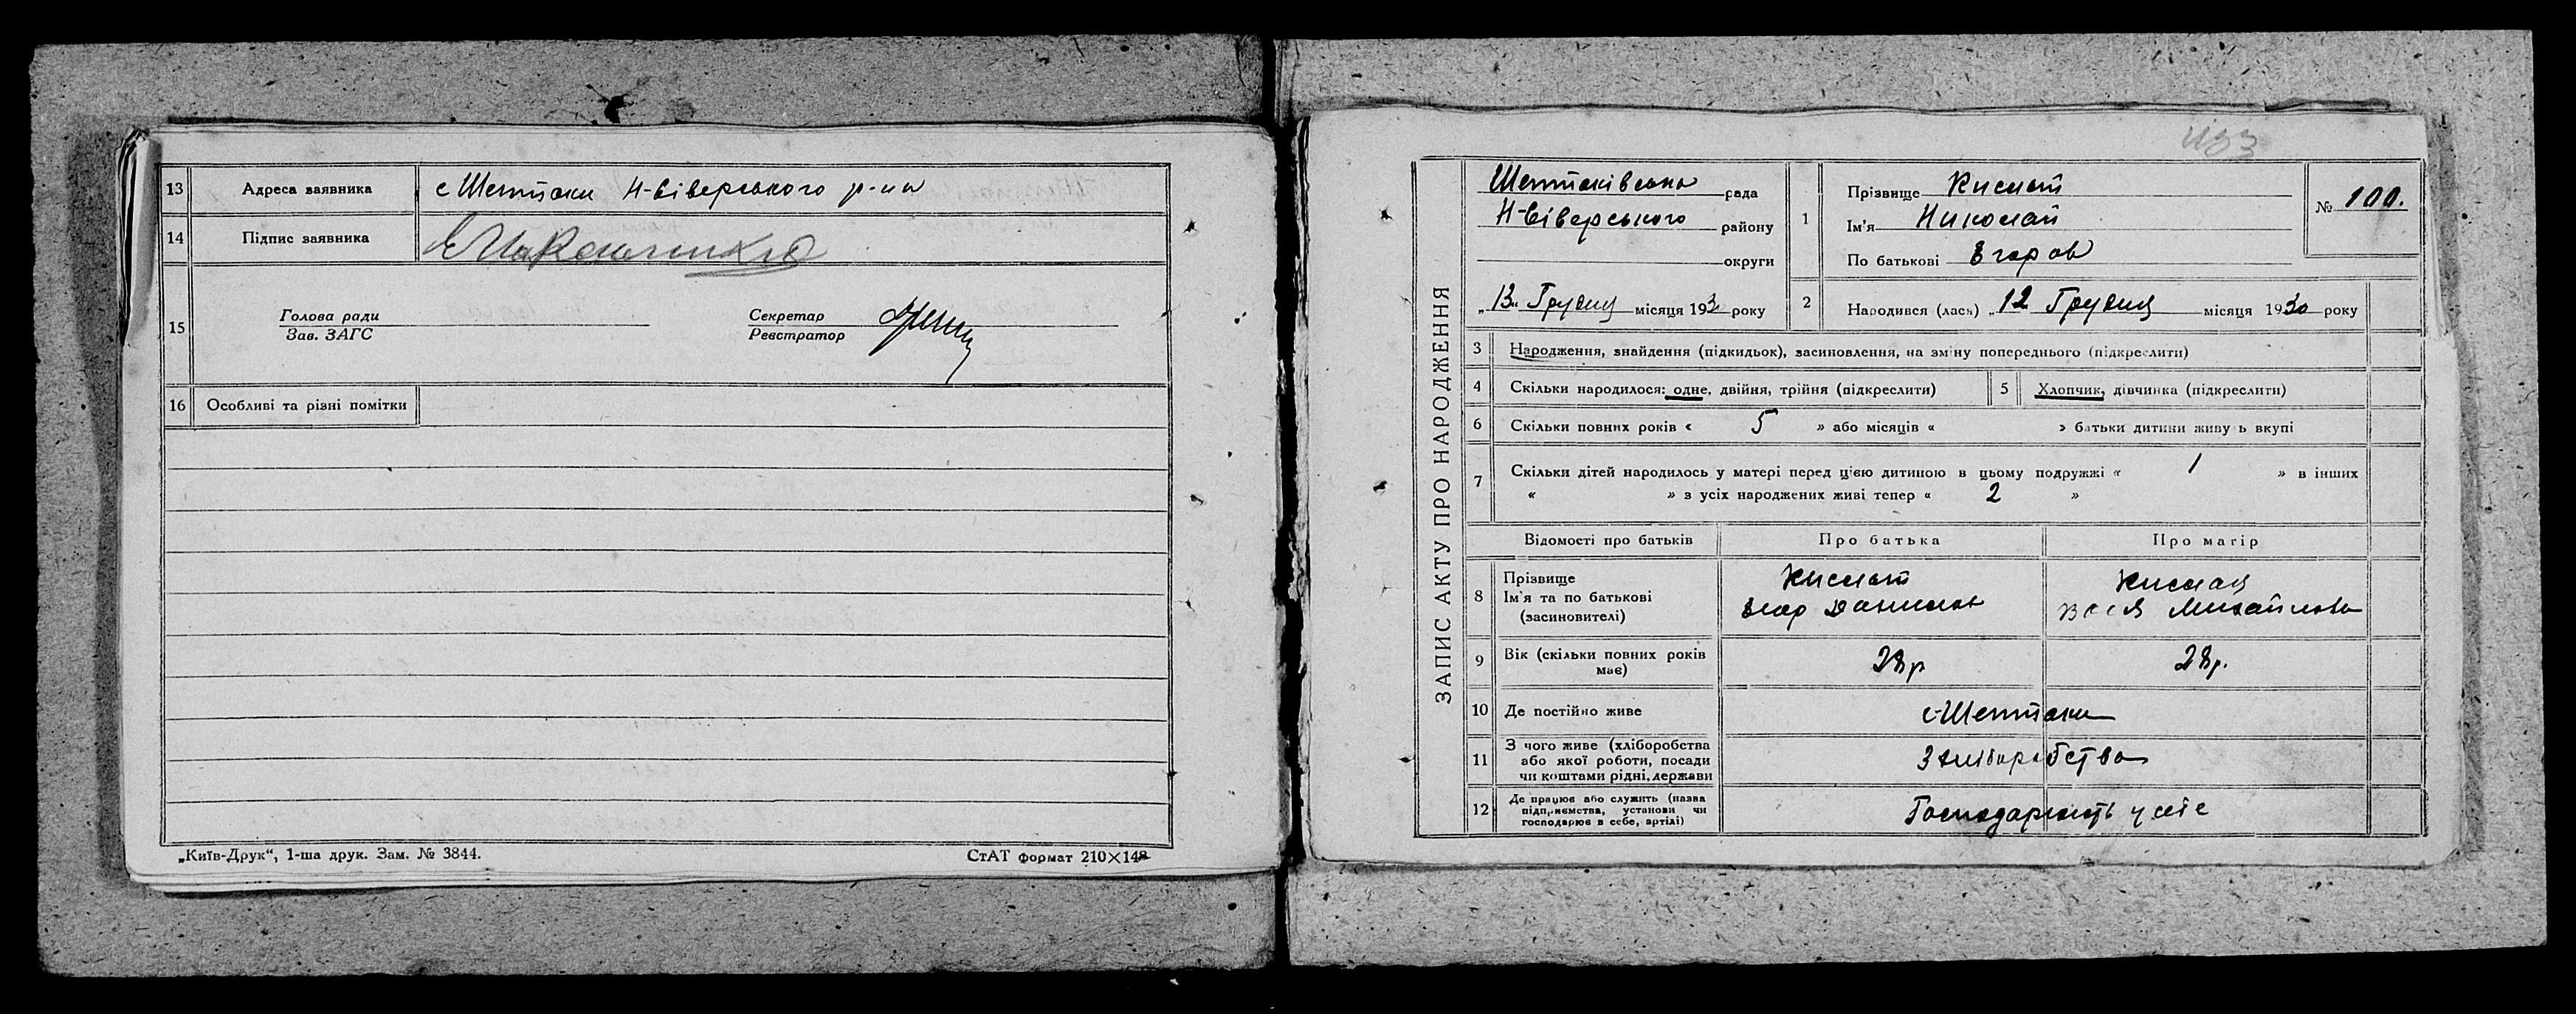 13 Адреса заявника с Шептаки Н-Сіверського р-на
14 Підпис заявника
15 Голова ради
Зав. ЗАГС
Секретар
Реєстратор
16 Особливі та різні помітки
„Київ-Друк“, 1-ша друк. Зам. № 3844.
СтАТ формат 210×148
1133
ЗАПИС АКТУ ПРО НАРОДЖЕННЯ
Шептаківська рада
Н-Сіверського району
округи
„13“ Грудня місяця 193 року
1 Прізвище Кислат
Ім'я Николай
По батькові Егоров
№ 100.
2 Народився (лась) „12 Грудня місяця 1930 року
3 Народження, знайдення (підкидьок), засиновлення, на зміну попереднього (підкреслити)
4 Скільки народилося: одне, двійня, трійня (підкреслити)
5 Хлопчик, дівчинка (підкреслити)
6 Скільки повних років « 5 » або місяців « » батьки дитини живуть вкупі
7 Скільки дітей народилось у матері перед цією дитиною в цьому подружжі « 1 » в інших
« » з усіх народжених живі тепер « 2 »
Відомості про батьків Про батька Про матір
8 Прізвище
Ім'я та по батькові
(засиновителі)
Кислат
Егор Данилов
Кислая
Михайлова
9 Вік (скільки повних років
має)
28р
28р.
10 Де постійно живе с-Шептаки
11 З чого живе (хліборобства
або якої роботи, посади
чи коштами рідні, держави
З хліборобства
12 Де працює або служить (назва
підприємства, установи чи
господарює в себе, артілі)
Господарюють у себе